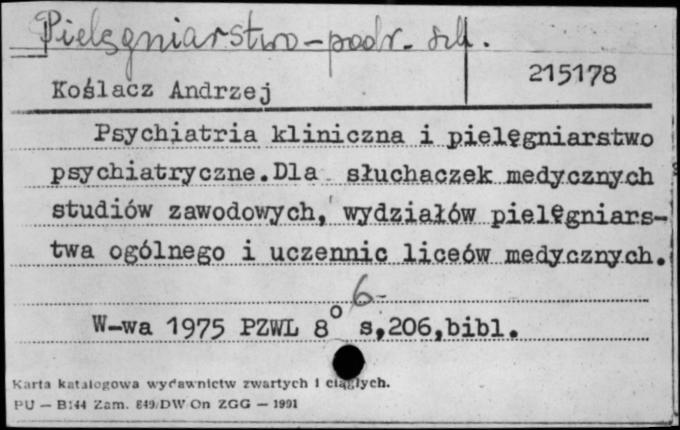 Pielęgniarstwo - podr. szk.
Koślacz Andrzej
215178
Psychiatria kliniczna i pielęgniarstwo
psychiatryczne.Dla słuchaczek medycznych
studiów zawodowych, wydziałów pielęgniars-
twa ogólnego i uczennic liceów medycznych.
6-
W-wa 1975 PZWL 8° s,206,bibl.
Karta katalogowa wydawnictw zwartych i ciągłych.
PU — B144 Zam. 849/DW On ZGG — 1991